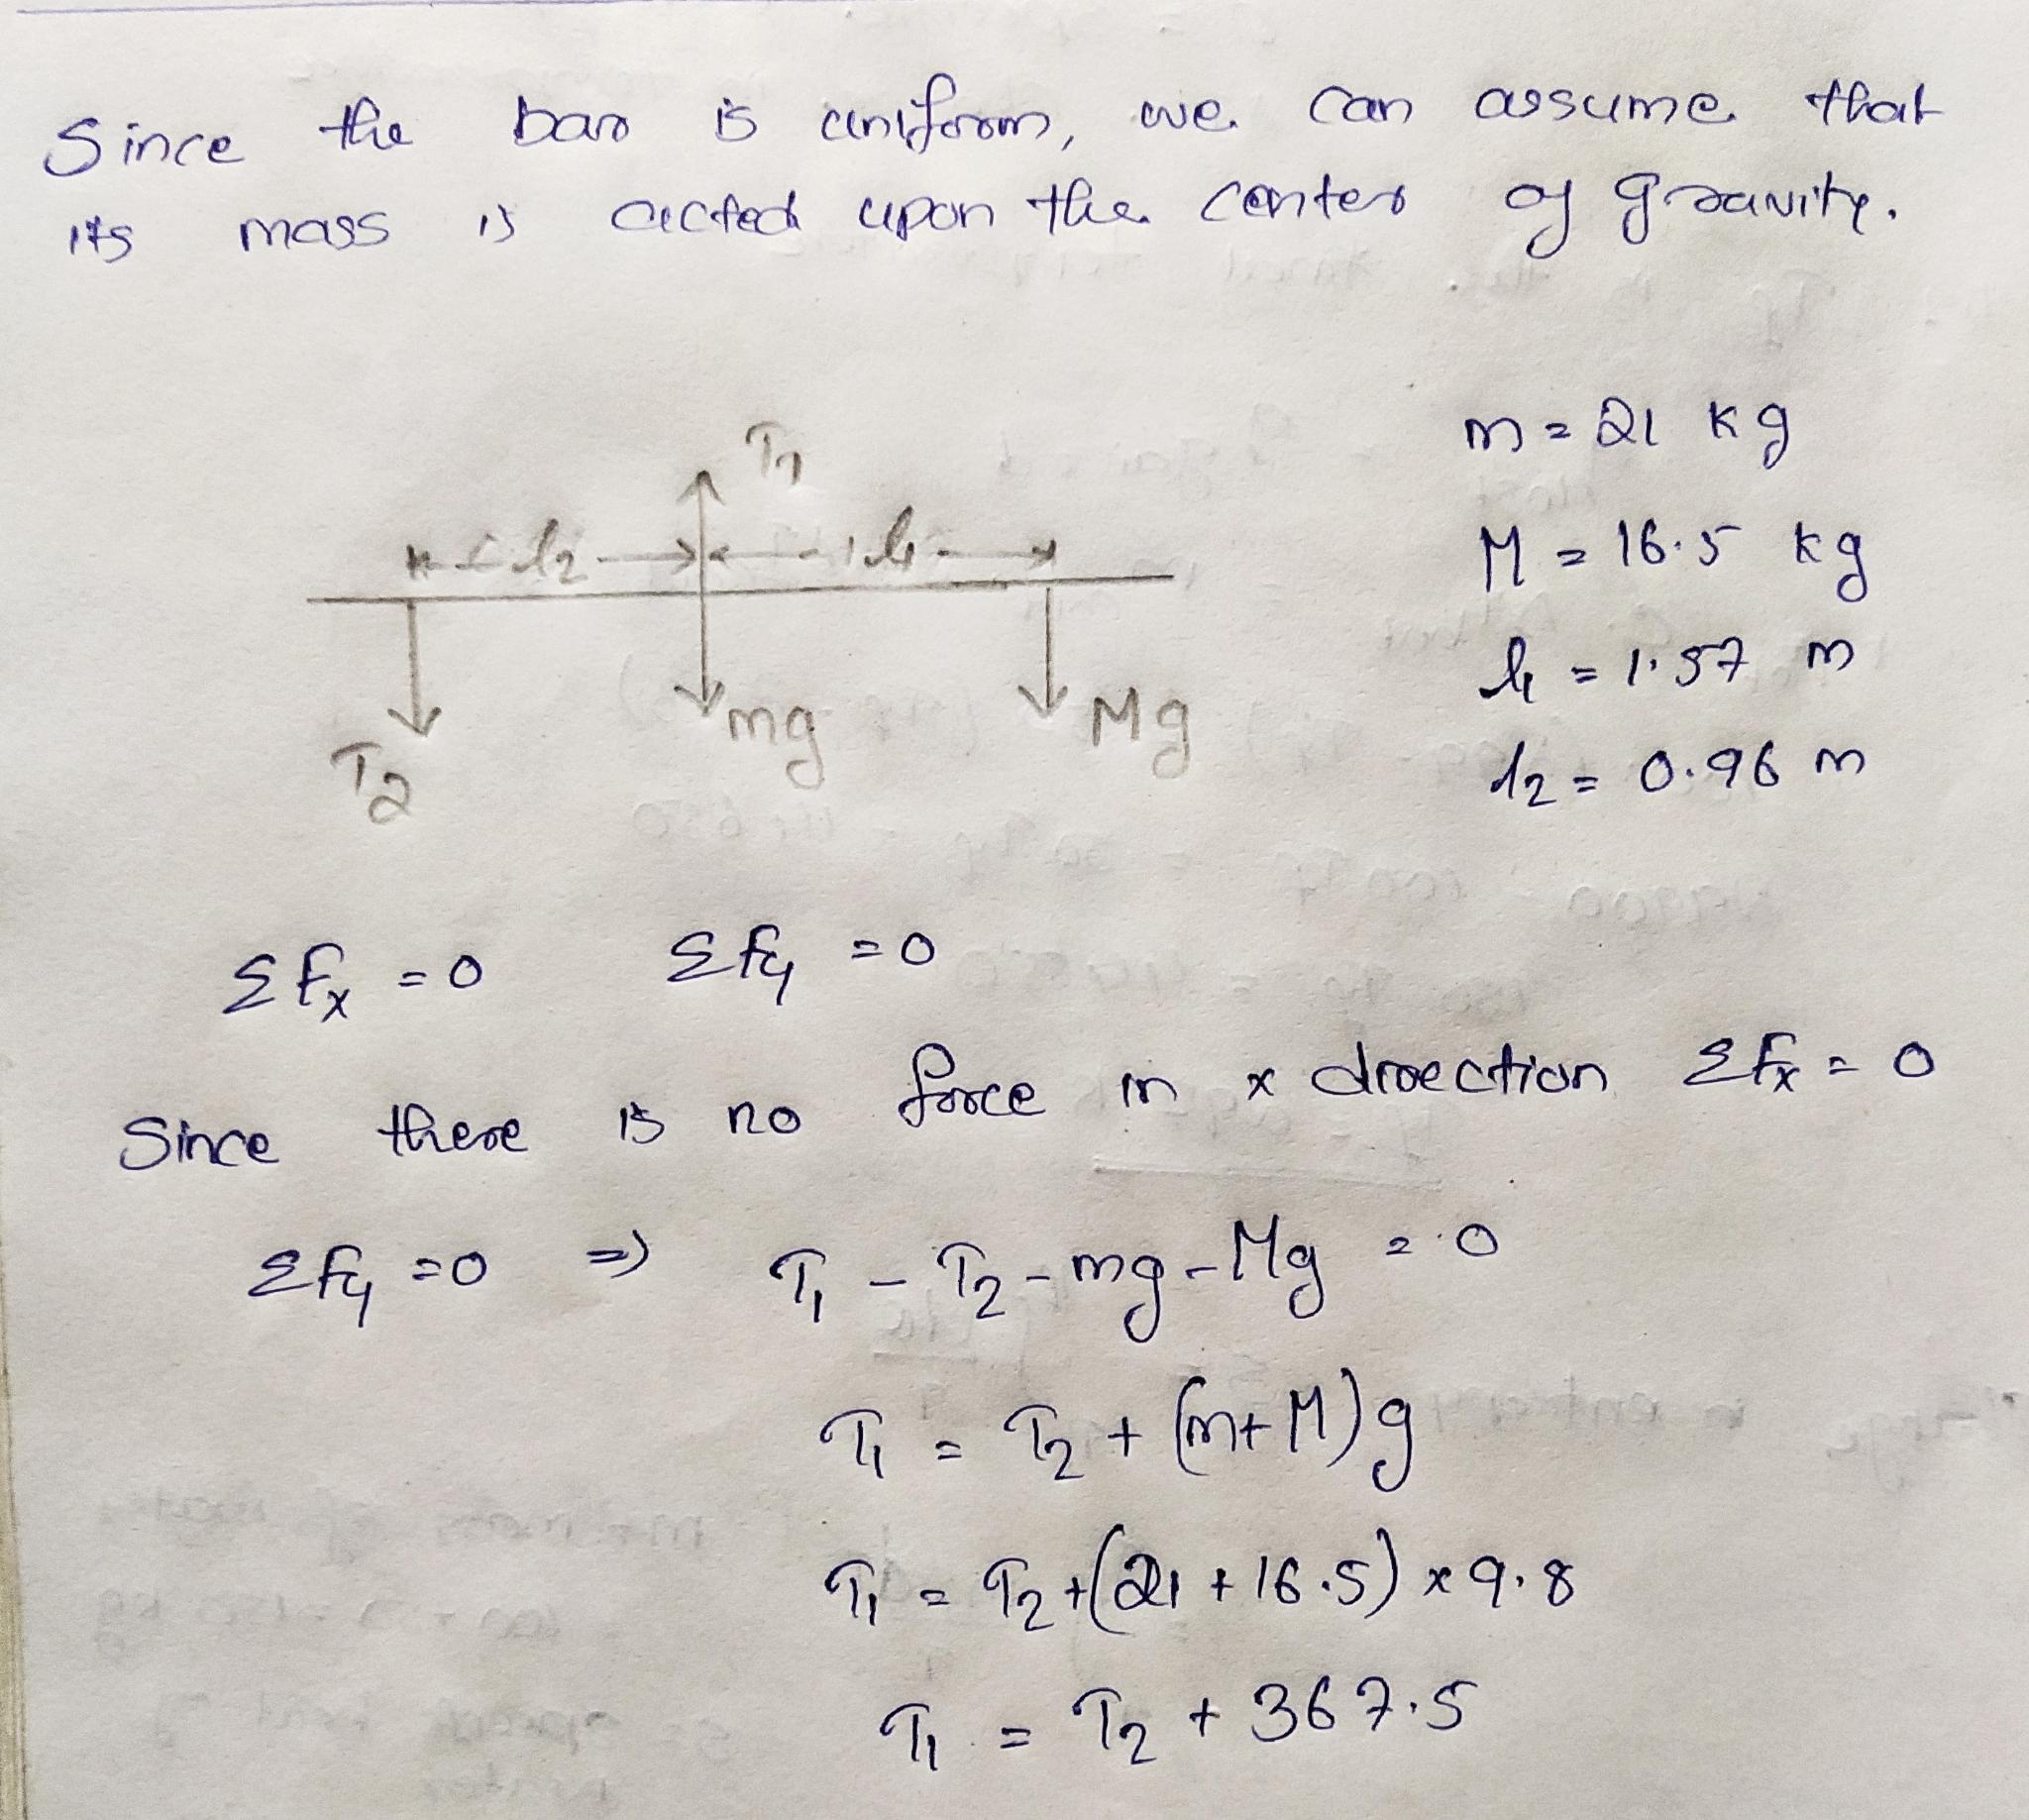 Since the bar is uniform, we can assume that
its mass is acted upon the center of gravity.
T₁
l₂ l₁
T₂ mg Mg
m = 21 kg
M = 16.5 kg
l₁ = 1.57 m
l₂ = 0.96 m
Σfx = 0 Σfy = 0
Since there is no force in x direction Σfx = 0
Σfy = 0 ⇒ T₁ - T₂ - mg - Mg = 0
T₁ = T₂ + (m+M)g
T₁ = T₂ + (21 + 16.5) × 9.8
T₁ = T₂ + 367.5